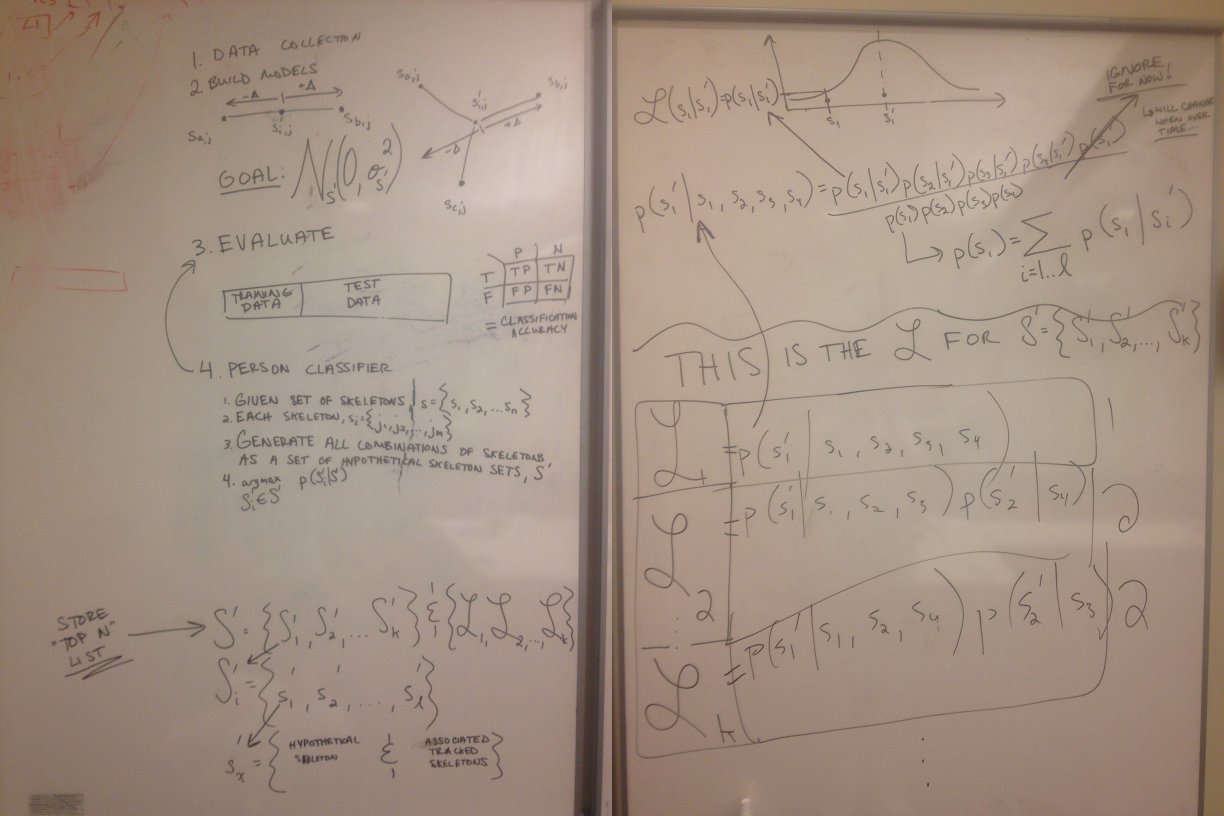 1. DATA COLLECTION
2. BUILD MODELS
-Δ +Δ
Sa,j S'i,j Sb,j
Sa,j S'i,j Sb,j
-Δ +Δ
Sc,j
GOAL: N_s'(0, σ²_s')
3. EVALUATE
TRAINING DATA
TEST DATA
P N
T TP TN
F FP FN
= CLASSIFICATION
ACCURACY
4. PERSON CLASSIFIER
1. GIVEN SET OF SKELETONS, S = {s₁, s₂, ...sₙ}
2. EACH SKELETON, sᵢ = {j₁, j₂, ..., jₘ}
3. GENERATE ALL COMBINATIONS OF SKELETONS
AS A SET OF HYPOTHETICAL SKELETON SETS, S'
4. argmax p(S'ᵢ|S)
S'ᵢ ∈ S'
STORE
"TOP N"
LIST
S' = {S'₁, S'₂, ... S'ₖ} & {ℒ₁, ℒ₂, ..., ℒₖ}
S'ᵢ = {s'₁, s'₂, ..., s'ₗ}
s'ₓ = {HYPOTHETICAL SKELETON & ASSOCIATED TRACKED SKELETONS}
ℒ(s₁|s'₁) = p(s₁|s'₁)
s₁ s'₁
IGNORE
FOR NOW!
↳ WILL CHANGE
WHEN OVER
TIME...
p(s'₁|s₁, s₂, s₃, s₄) = p(s₁|s'₁) p(s₂|s'₁) p(s₃|s'₁) p(s₄|s'₁) p(s'₁)
p(s₁) p(s₂) p(s₃) p(s₄)
↳ p(s₁) = Σ p(s₁|s'ᵢ)
i=1..l
THIS IS THE ℒ FOR S' = {S'₁, S'₂, ..., S'ₖ}
ℒ₁ = p(s'₁|s₁, s₂, s₃, s₄) 1
ℒ₂ = p(s'₁|s₁, s₂, s₃) p(s'₂|s₄) 2
ℒₖ = p(s'₁|s₁, s₂, s₄) p(s'₂|s₃) 2